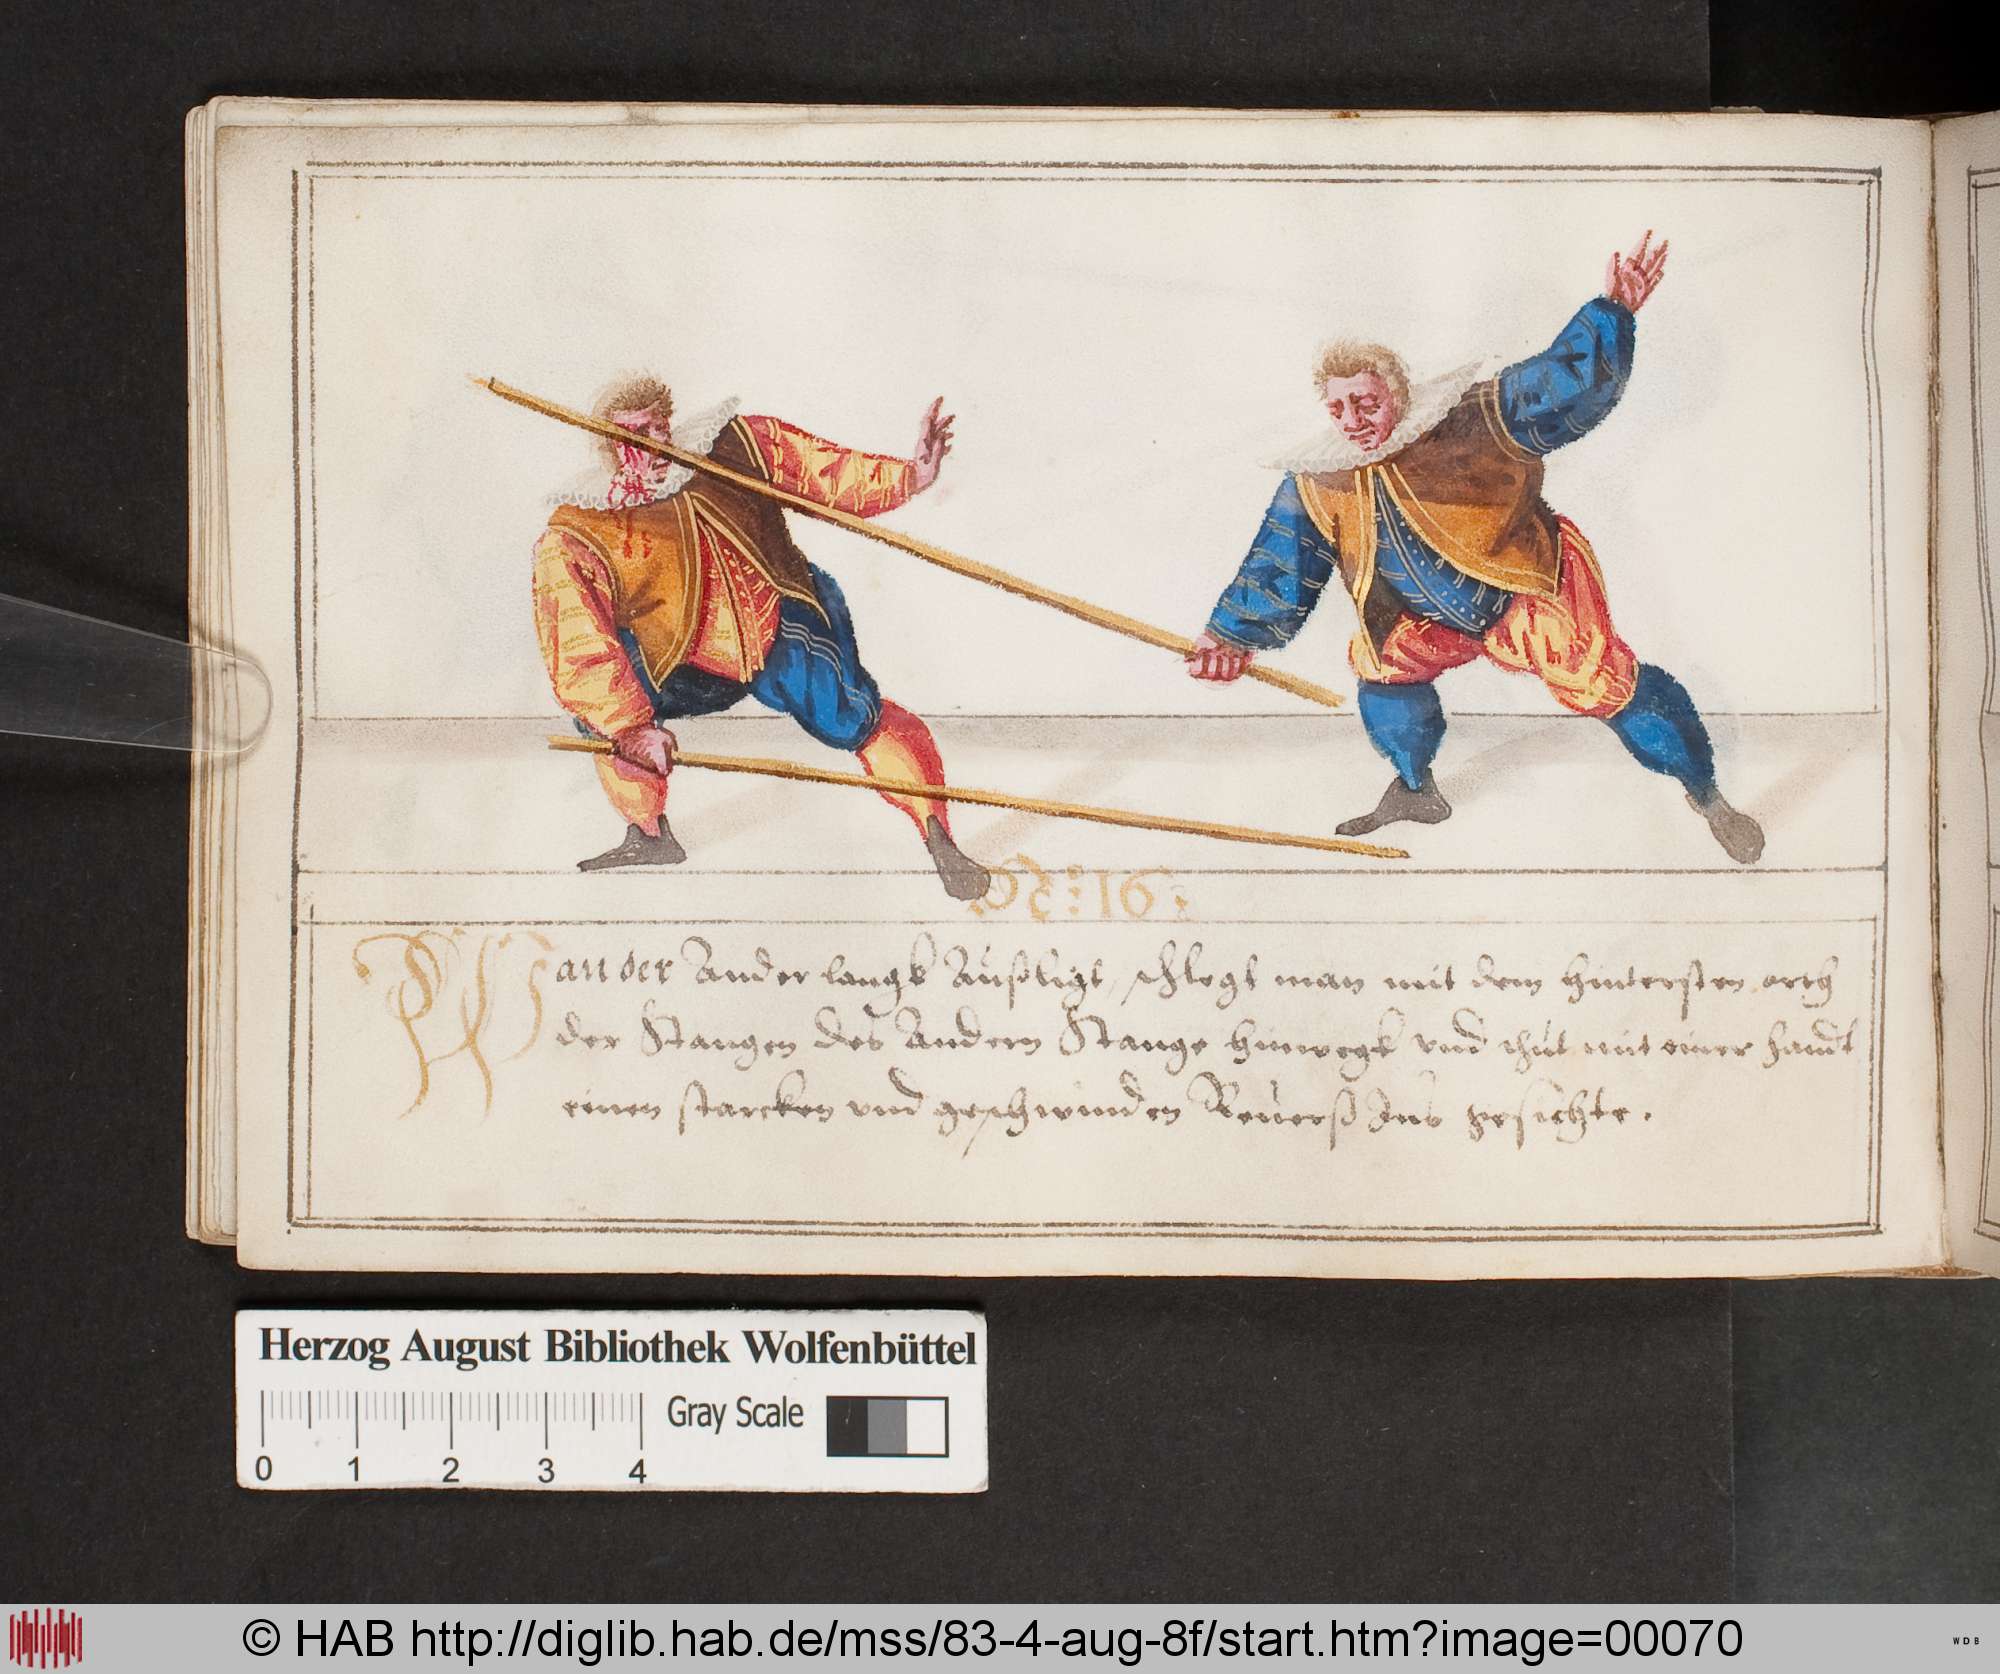 91:50
Wan der Ander langk Außligt, schlegt man mit dem hintersten orth
der Stangen des Andern Stange hinwegk vnd thut mit einer handt
einen starcken vnd geschwinden Reuerß Ins gesichte.
Herzog August Bibliothek Wolfenbüttel
Gray Scale
0 1 2 3 4
© HAB http://diglib.hab.de/mss/83-4-aug-8f/start.htm?image=00070
WDB